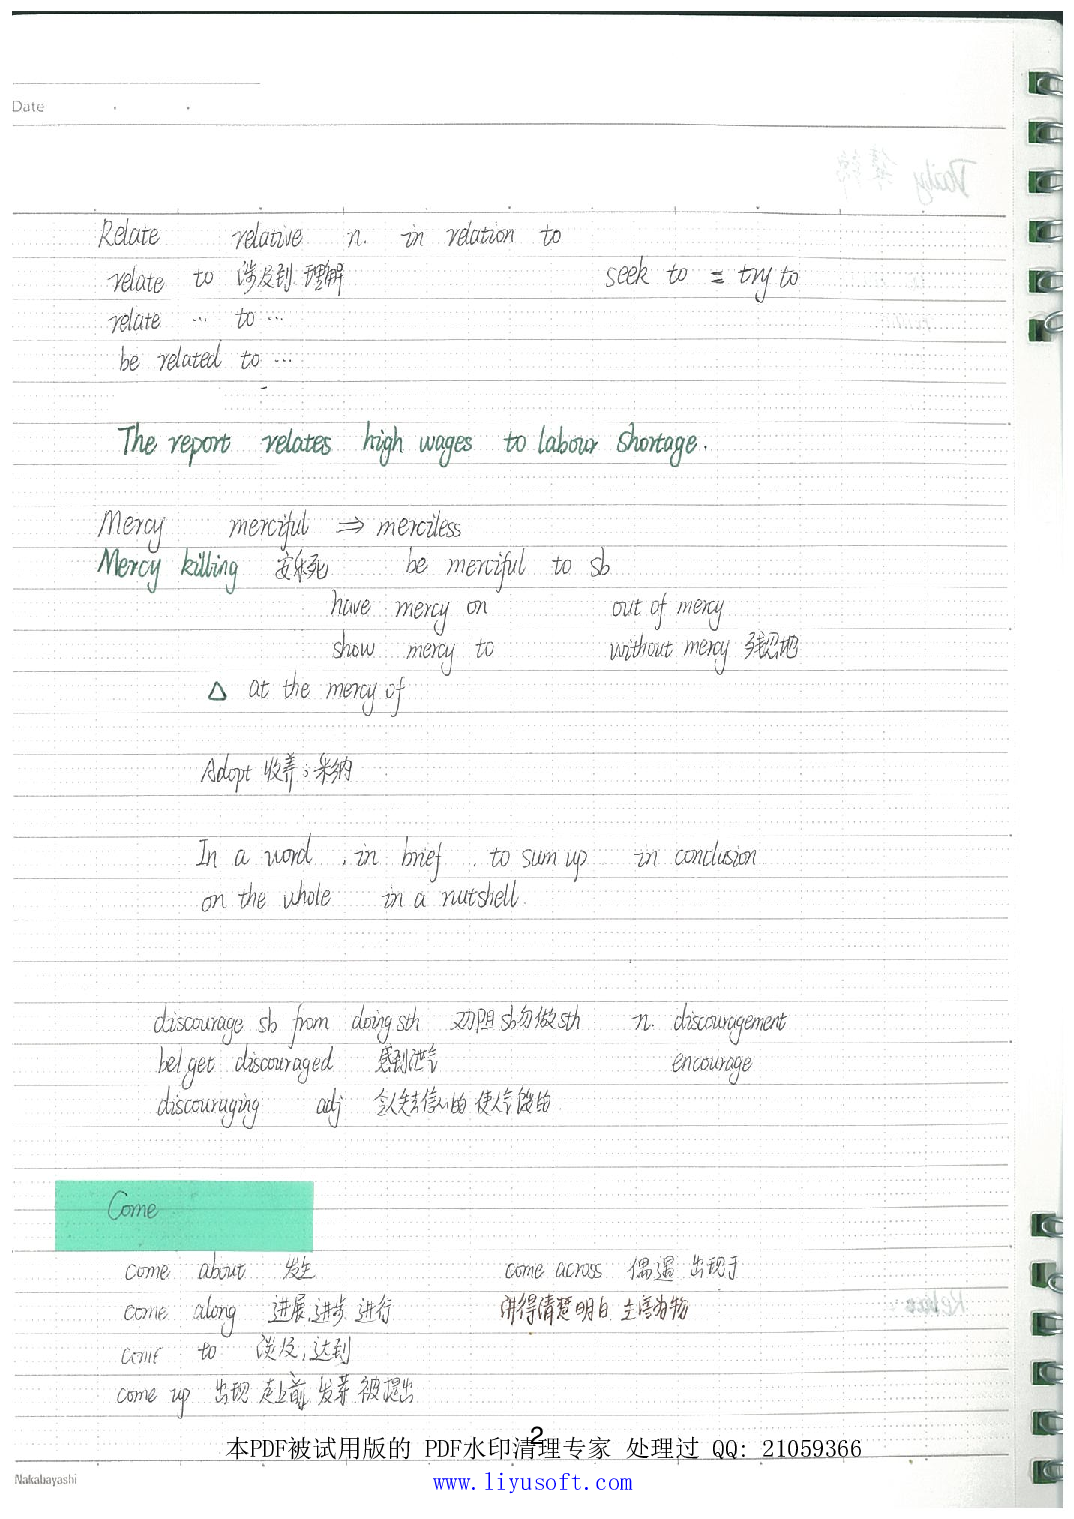 Date
Daily
Relate relative n. in relation to
relate to 涉及到.理解 seek to = try to
relate … to …
be related to …
The report relates high wages to labour shortage.
Mercy merciful ⇒ merciless
Mercy killing 安乐死 be merciful to sb
have mercy on out of mercy
show mercy to without mercy 残忍地
△ at the mercy of
Adopt 收养；采纳
In a word , in brief , to sum up in conclusion
on the whole in a nutshell.
discourage sb from doing sth 劝阻sb勿做sth n. discouragement
be/get discouraged 感到泄气 encourage
discouraging adj 令人失去信心的 使人气馁的
Come
come about 发生 come across 偶遇 出现于
come along 进展,进步 进行 讲得清楚明白
come to 涉及,达到
come up 出现 走上前 发芽 被提出
2
本PDF被试用版的 PDF水印清理专家 处理过 QQ: 21059366
www.liyusoft.com
Nakabayashi